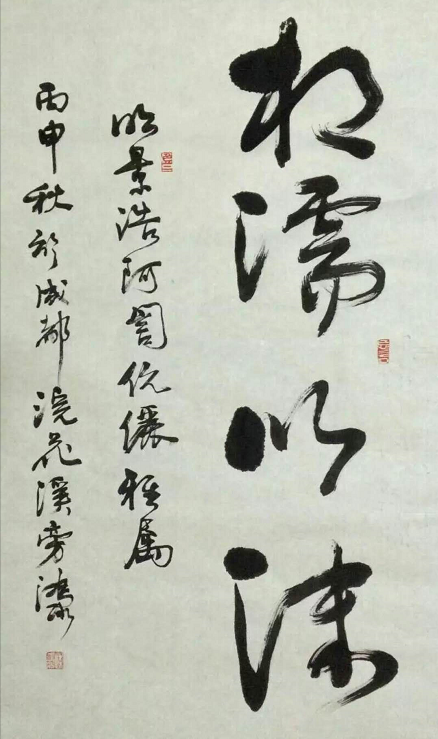 相濡以沫
以景浩阿罾伉俪雅属
丙申秋於成都浣花溪旁